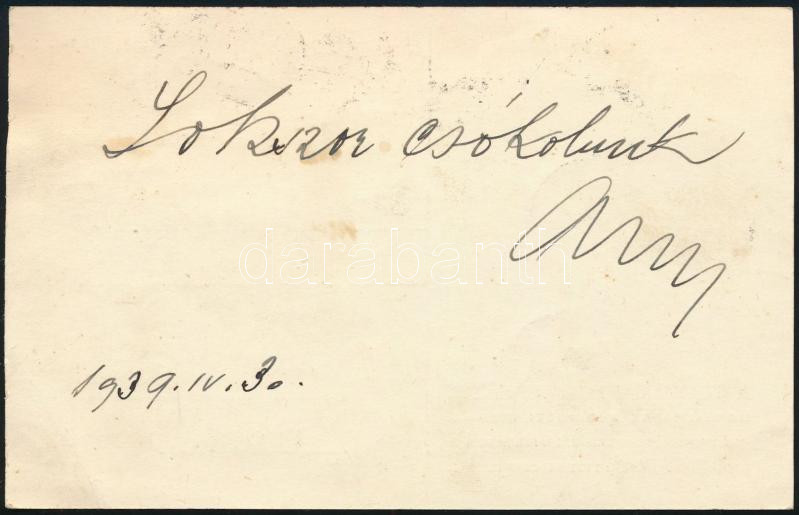 Sokszor csókolunk
darabanth
1939.IV.30.